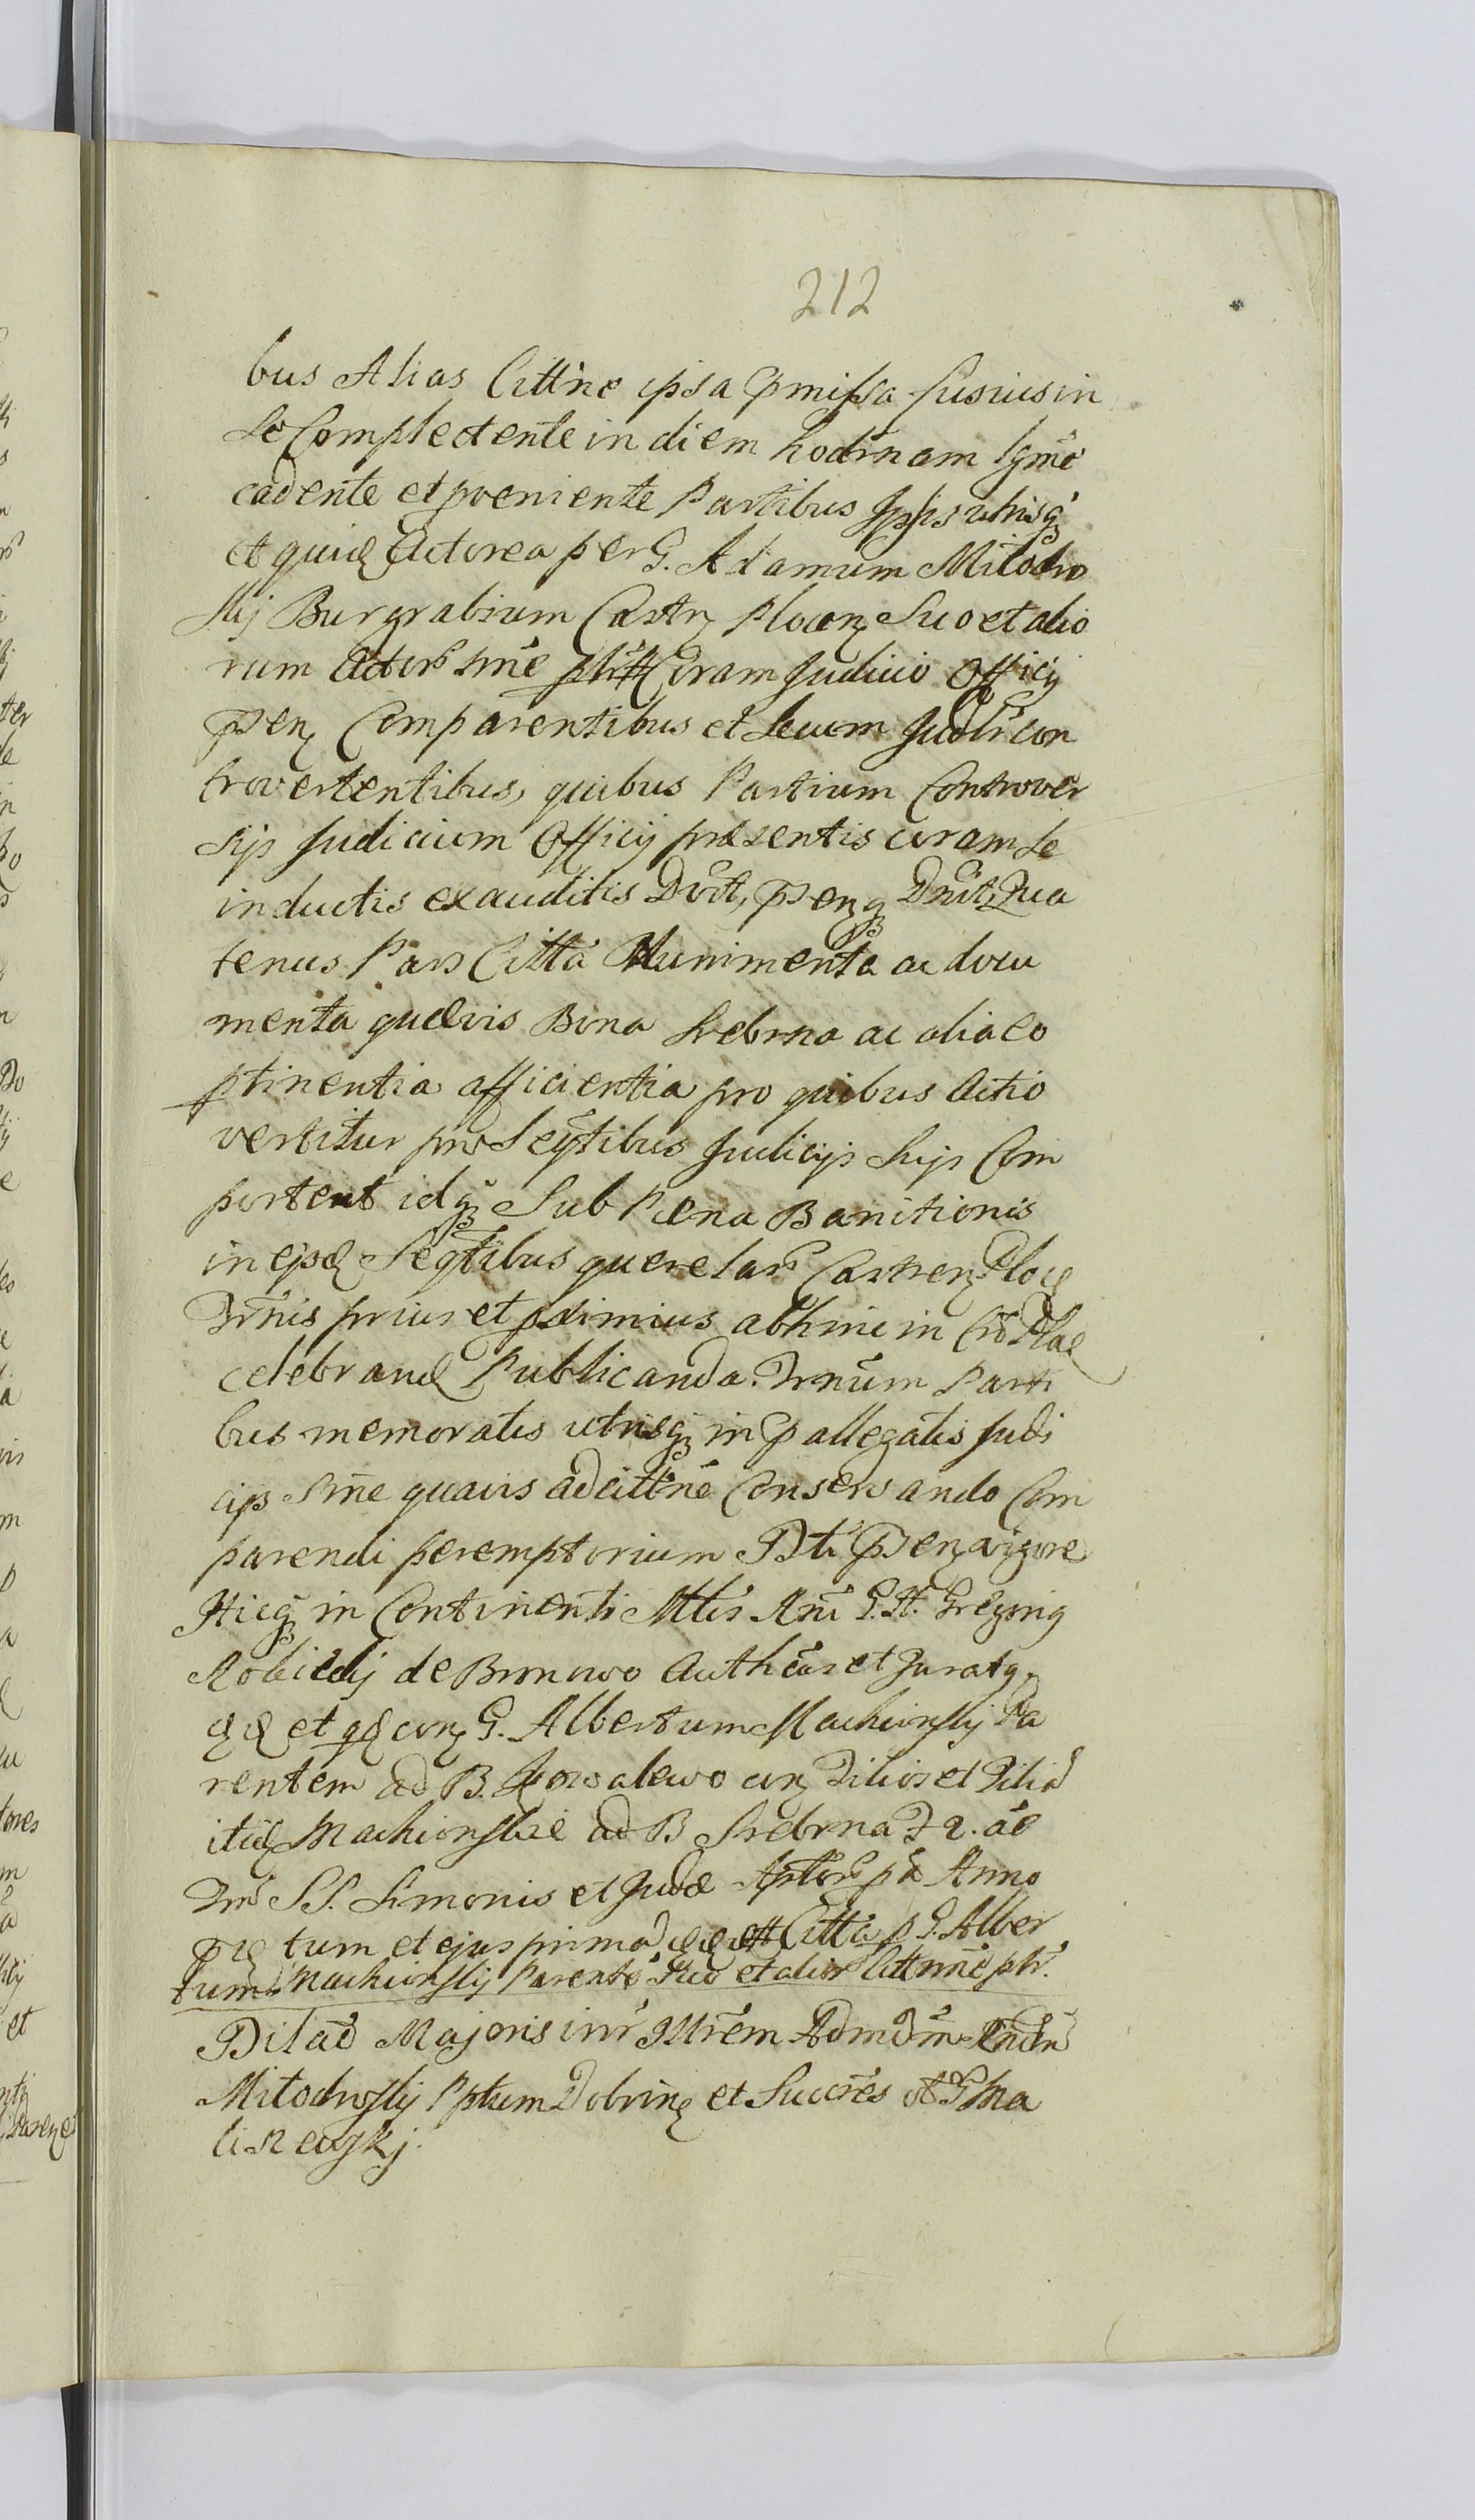 212
bus Alias Cittne ipsa pmissa fusius in
se Complectente in diem hodrnam lgme
cadente et proveniente Partibus Ipsis utrisq
et quid Actorea per G. Adamum Mitodro
skj Burgrabium Castrz Plocenz Suo et alio
rum Actor nne Coram Judicio Officij
psenz Comparentibus et secum Judlr con
trovertentibus, quibus Partium Controver
sijs Judicium Officij præsentis coram se
inductis exauditis Dvit, psenzq Dnit, Qua
tenus Pars Citta Munimenta ac docu
menta quævis Bona Srebrna ac alia eo
ptinentia afficientia pro quibus Actio
vertitur pro Seqtibus Judicijs Suis Com
portent idq Sub Pæna Banitionis
in ejsd Seqtibus querelar Castrenz Ploc
Trnis prius et pximius abhinc in Cro
celebrand Publicanda. Trnum Parti
bus memoratis utrisq in pallegatis Judi
cijs Sine quavis adcittne Conservando Com
parendi peremptorium Dti psenz vigore
Hicq in Continenti Mtis Ani G. St. Gregorig
Robickj de Bromwo Authcus et Juratg.
qd et qd conz G. Albertum Machcinskj Pa
rentem ad B. Kowalewo conz Filios et Filia
itid Machcinskie ad B Srebrna F 2. ae
Fm SS. Simonis et Judæ Aptor pa Anno
tum et ejus prima Citta p G. Alber
tum Machcinskij Parente Suo et alior Citt nne
Dilad Majoris inr Illrem Admdm Rndm
Mitodroskij Pptum Dobrinz et Succres ot G Ma
liszewskj.